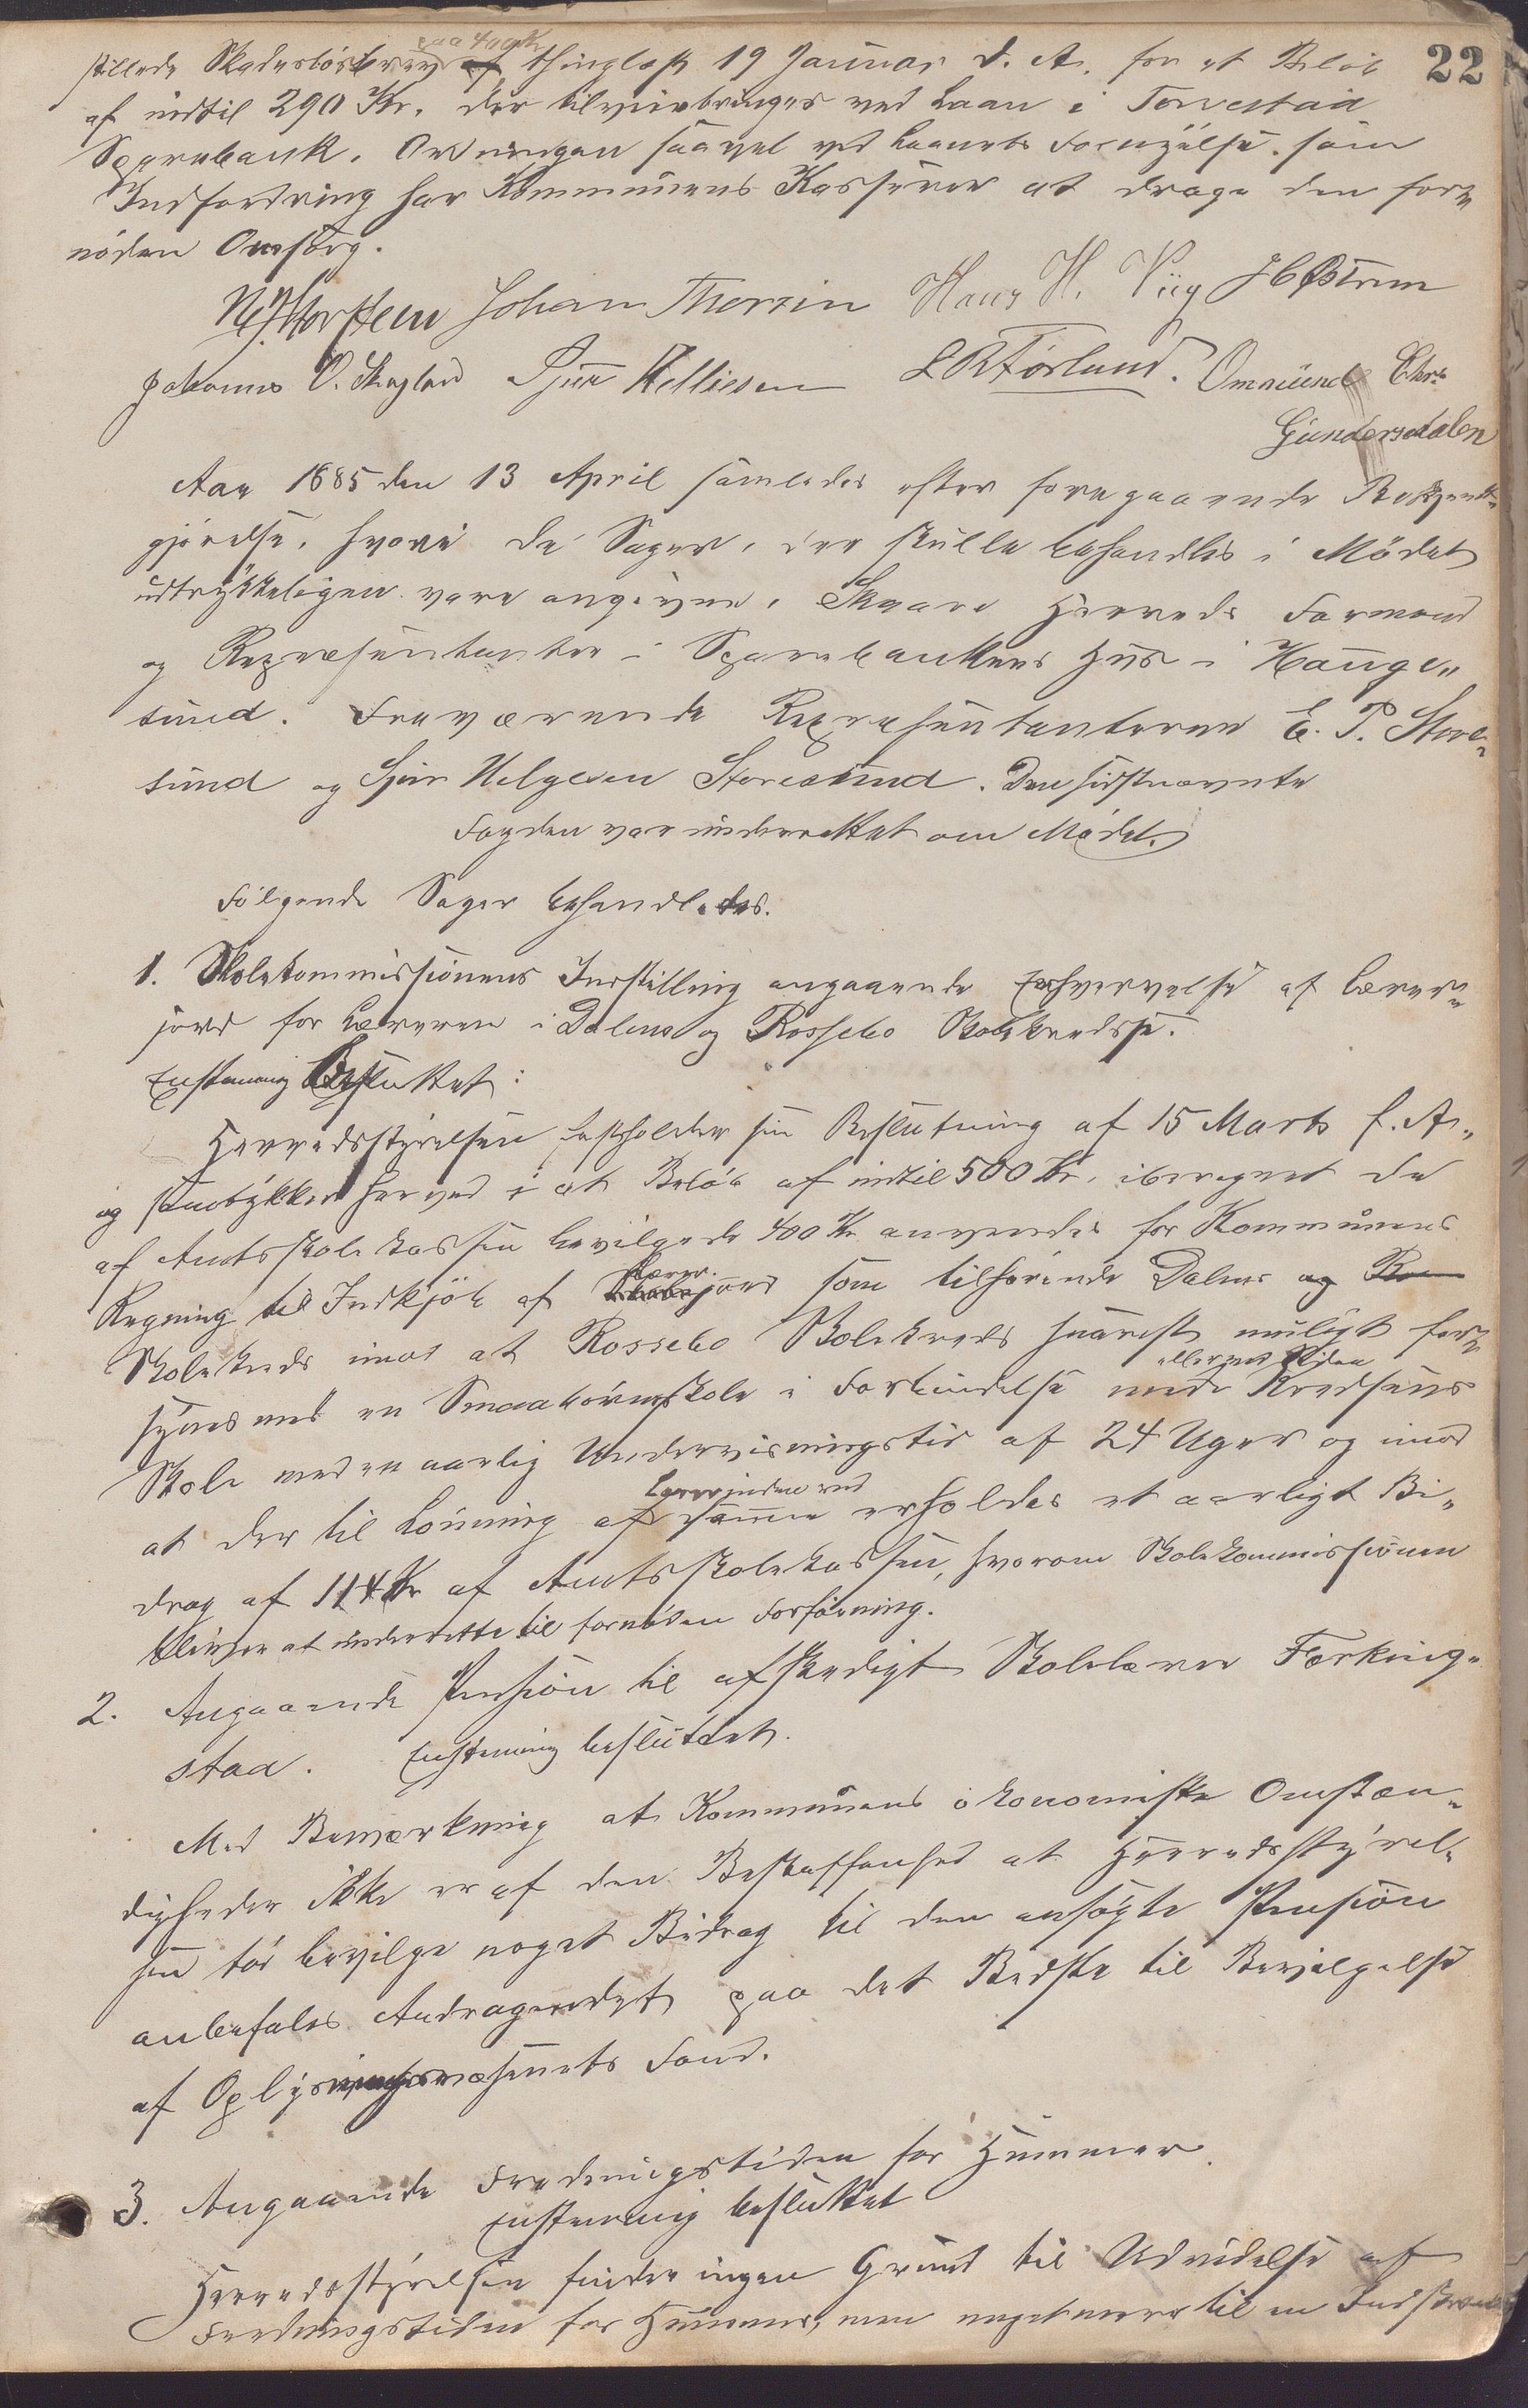 22
paa 400 Kr
stillede Skadesløsbrev thinglæst 19 Januar d. A. for et Beløb
af indtil 290 Kr. der tilveiebringes ved Laan i Torvestad
Sparebank. Ordningen saavel ved Laanets Fornyelse som
Indfordring har Kommunens Kasserer at drage den for-
nøden Omsorg.
Johan Thorsen Hans H. Viig
Johannes O. Skogland Sjur Helliesen L R Førland. Ommund Chrs
Gundersdalen
Aar 1885 den 13 April samledes efter foregaaende Bekjendt-
gjørelse, hvori de Sager, der skulle behandles i Mødet
udtrykkeligen vare angivne, Skaare Herreds Formænd
og Repræsentanter i Sparebankens Hus i Hauge-
sund. Fraværende Repræsentanterne E. P. Store-
sund og Sjur Helgesen Storesund. Den sidstnævnte
Fogden var underrettet om Mødet.
Følgende Sager behandledes.
1. Skolekommissionens Indstilling angaaende Erhvervelse af Lærer-
jord for Læreren i Dalens og Rossebø Skolekredse.
Enstemmig Besluttet:
Herredsstyrelsen fastholder sin Beslutning af 15 Marts f. A.
og samtykker herved i at Beløb af indtil 500 Kr. iberegnet de
af Amtsskolekassen bevilgede 400 Kr anvendes for Kommunens
Lærer-
Regning til Indkjøb af jord som tilhørende Dalens
Skolekreds imod at Rossebø Skolekreds snarest muligt for-
synes med en Smaabørnsskole i Forbindelse med Kredsens
Skole med en aarlig Undervisningstid af 24 Uger og imod
Lærerinden ved
at der til Lønning af samme erholdes et aarligt Bi-
drag af 114 Kr af Amtsskolekassen, hvorom Skolekommissionen
bliver at underrette til fornøden Forføining.
2. Angaaende Pension til afskediget Skolelærer Førking-
stad. Enstemmig besluttet.
Med Bemærkning at Kommunens økonomiske Omstæn-
digheder ikke er af den Beskaffenhed at Herredsstyrel-
sen tør bevilge noget Bidrag til den ansøgte Pension
anbefales Andragendet paa det Bedste til Bevilgelse
af Oplysningsvæsenets Fond.
3. Angaaende Fredningstiden for Hummer.
Enstemmig besluttet
Herredsstyrelsen finder ingen Grund til Udvidelse af
Fredningstiden for Hummer, men meget mere til en